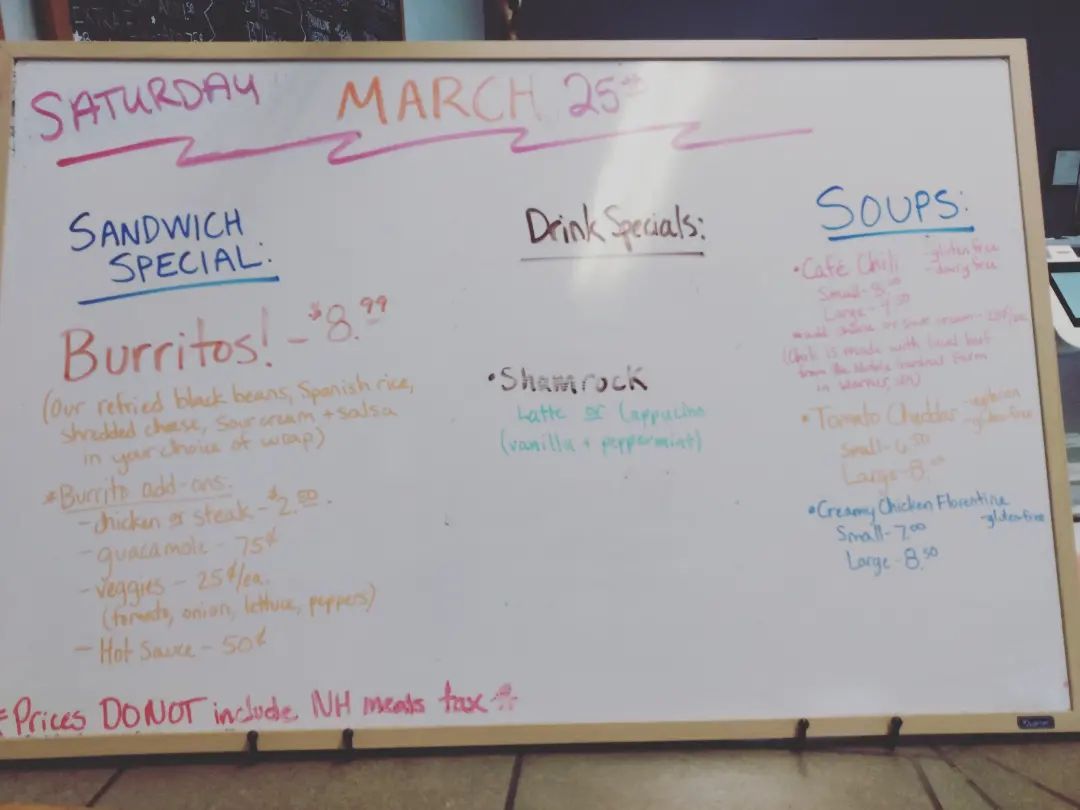 SATURDAY MARCH 25th
SANDWICH
SPECIAL:
Burritos! - $8.99
(Our refried black beans, Spanish rice,
shredded cheese, sour cream + salsa
in your choice of wrap)
*Burrito add-ons:
- chicken or steak - $2.50
- guacamole - 75¢
- veggies - 25¢/ea.
(tomato, onion, lettuce, peppers)
- Hot Sauce - 50¢
Drink Specials:
• Shamrock
Latte or Cappucino
(vanilla + peppermint)
SOUPS:
• Café Chili - gluten free
- dairy free
Small - 8.00
Large - 9.50
*add cheese or sour cream - 25¢/ea
(Chili is made with local beef
from the Farm
in Warner, NH)
• Tomato Cheddar - vegetarian
- gluten-free
Small - 6.50
Large - 8.00
• Creamy Chicken Florentine
- gluten-free
Small - 7.00
Large - 8.50
*Prices DO NOT include NH meals tax*